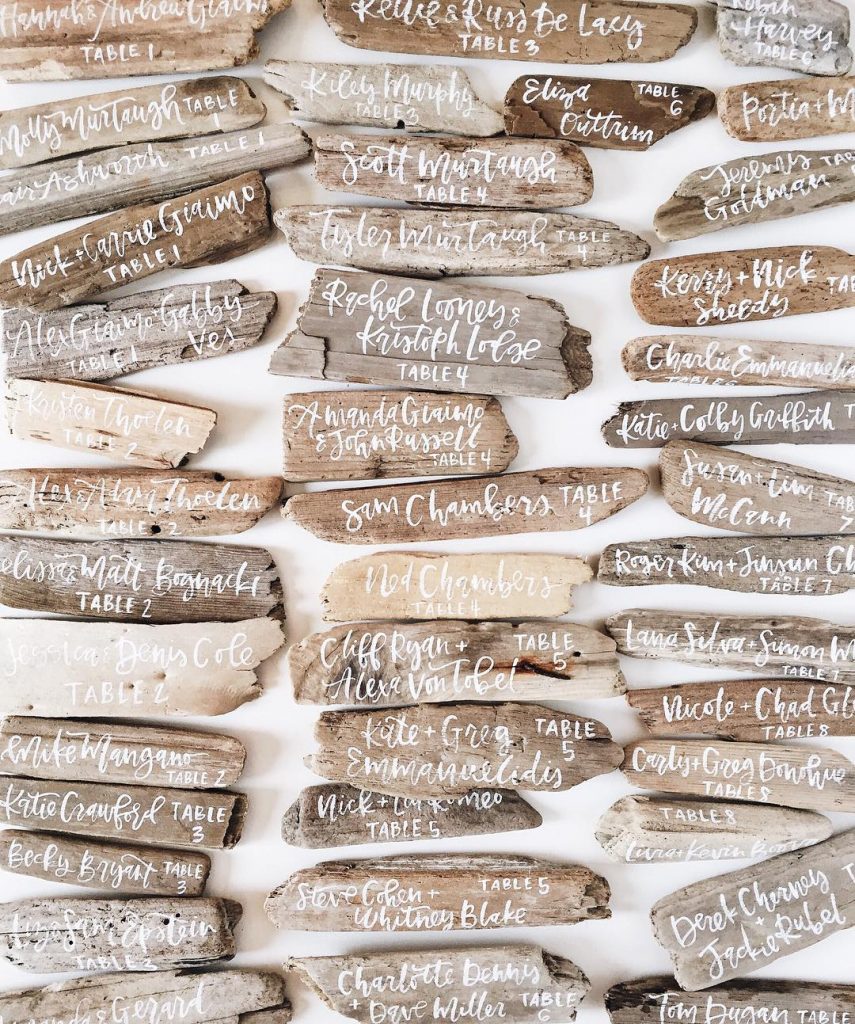 Hannah & Andrew Giaimo
TABLE 1
Molly Murtaugh TABLE
1
Ashworth TABLE 1
Nick + Carrie Giaimo
TABLE 1
Alex Giaimo + Gabby
Ves
TABLE 1
Kristen Thoelen
TABLE 2
Alex & Adam Thoelen
TABLE 2
Matt Bognacki
TABLE 2
Jessica & Denis Cole
TABLE 2
Mike Mangano
TABLE 2
Katie Crawford TABLE
3
Becky Bryant TABLE
3
Liz & Sam Epstein
TABLE 3
Gerard
Kellie & Russ De Lacy
TABLE 3
Kiley Murphy
TABLE 3
Eliza TABLE
Outtrum 6
Scott Murtaugh
TABLE 4
Tyler Murtaugh TABLE
4
Rachel Looney &
Kristoph Lodge
TABLE 4
Amanda Giaimo
& John Russell
TABLE 4
Sam Chambers TABLE
4
Ned Chambers
TABLE 4
Cliff Ryan + TABLE
Alexa Von Tobel 5
Kate + Greg TABLE
Emmanuelidis 5
Nick + Romeo
TABLE 5
Steve Cohen + TABLE 5
Whitney Blake
Charlotte Dennis
+ Dave Miller TABLE
6
Robin
Harvey
TABLE 6
Portia +
Jeremy
Goldman
Kerry + Nick
Sheedy
Charlie
TABLE 6
Katie + Colby Griffith
Susan + Lim
McCann
7
Roger Kim + Jinsun
TABLE 7
Lana Silva + Simon
TABLE 7
Nicole + Chad
TABLE 8
Carly + Greg Donohue
TABLE 8
TABLE 8
Kevin
Derek Cherney
+
Jackie Rubel
Tom Dugan TABLE